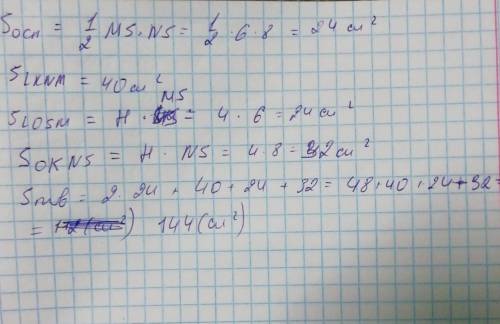 Sосн = 1/2 MS·NS = 1/2·6·8 = 24 см²
SLKNM = 40 см²
SLOSM = H · MS = 4 · 6 = 24 см²
SOKNS = H · NS = 4·8 = 32 см²
Sпов = 2·24 + 40 + 24 + 32 = 48+40+24+32=
= 144 (см²)